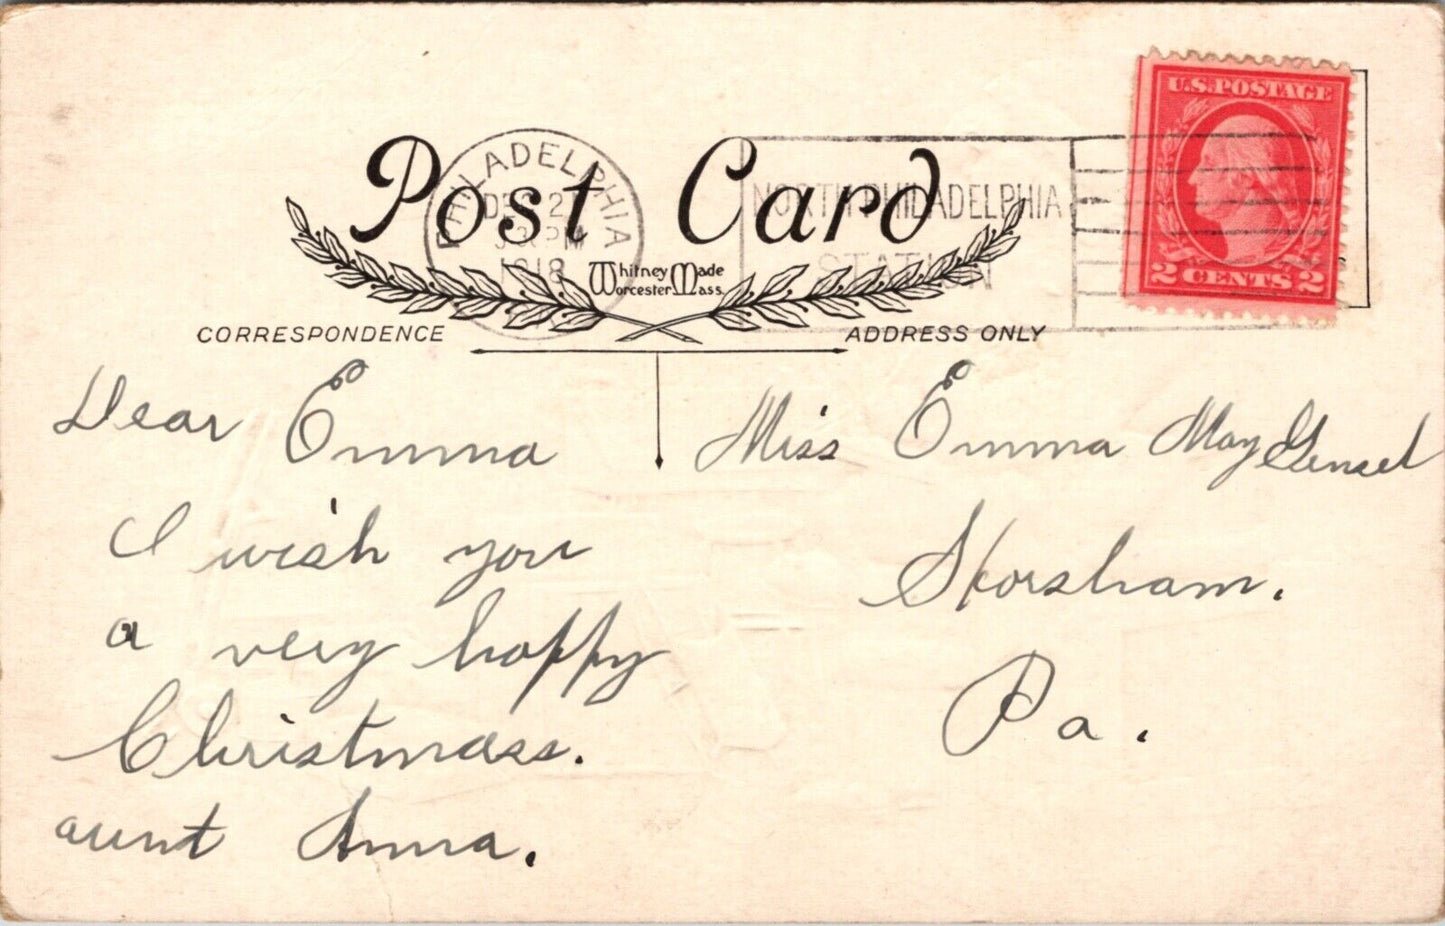 U.S. POSTAGE
2 CENTS 2
Post Card
PHILADELPHIA
DEC 2
PM
1918
NORTH PHILADELPHIA
STATION
Whitney Made
Worcester Mass.
CORRESPONDENCE
ADDRESS ONLY
Dear Emma
I wish you
a very happy
Christmass.
aunt Anna.
Miss Emma May
Horsham.
Pa.